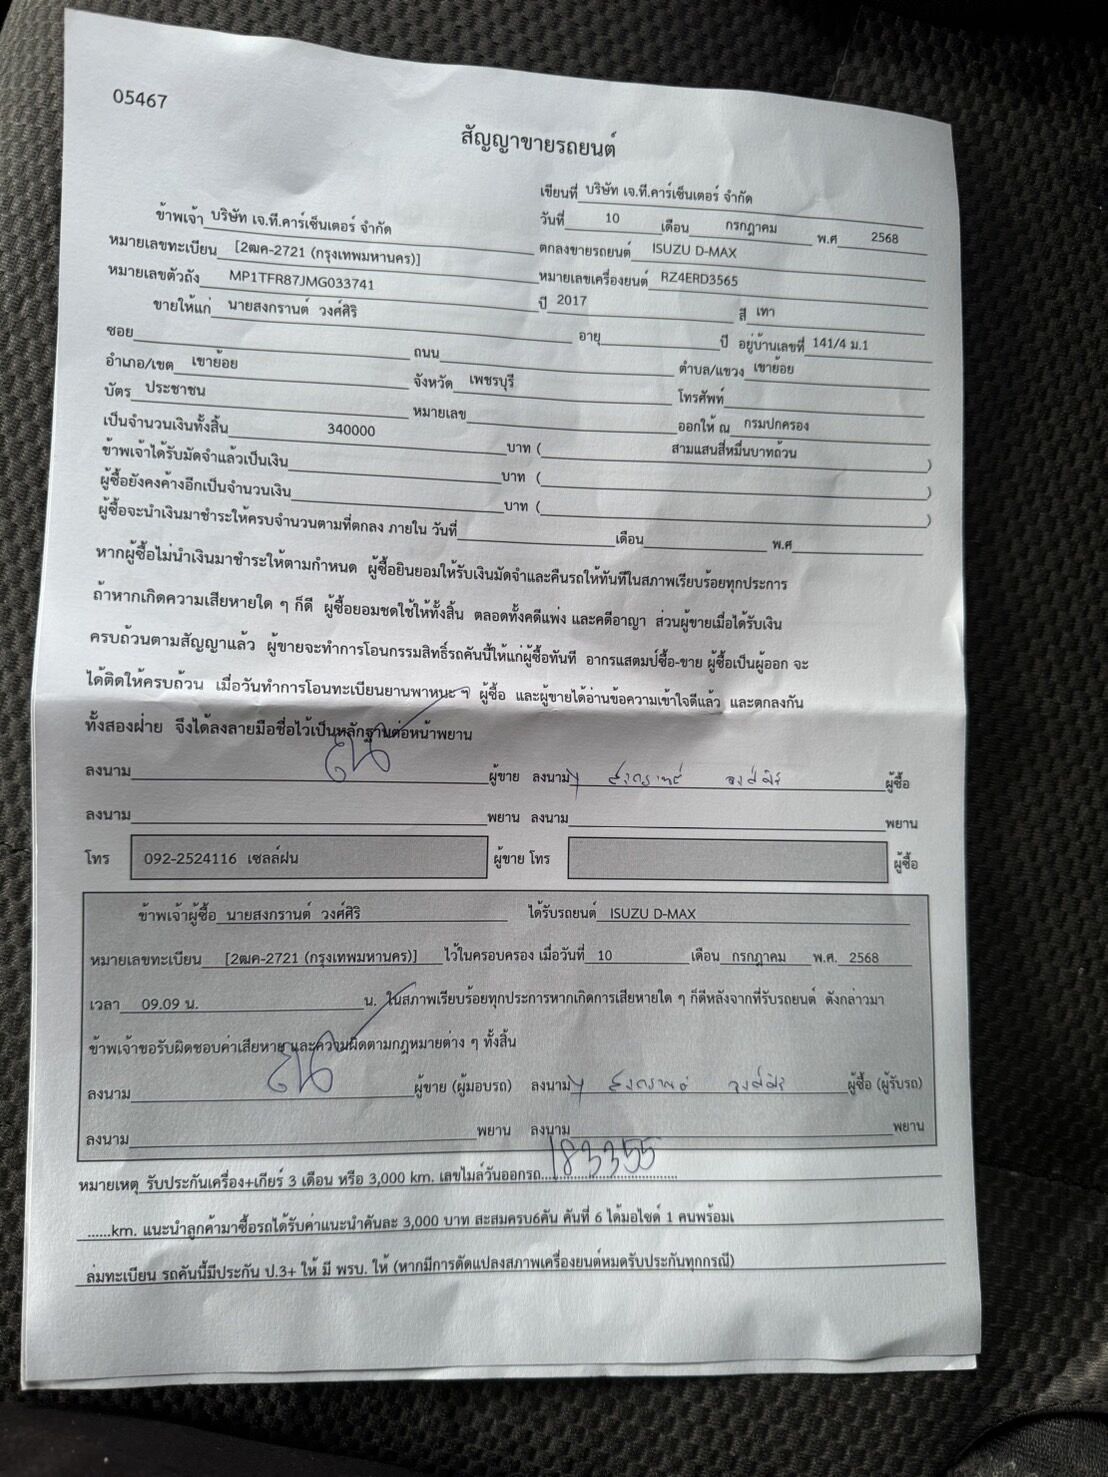 05467
สัญญาขายรถยนต์
เขียนที่ บริษัท เจ.ที.คาร์เซ็นเตอร์ จำกัด
ข้าพเจ้า บริษัท เจ.ที.คาร์เซ็นเตอร์ จำกัด วันที่ 10 เดือน กรกฎาคม พ.ศ 2568
หมายเลขทะเบียน [2ฒค-2721 (กรุงเทพมหานคร)] ตกลงขายรถยนต์ ISUZU D-MAX
หมายเลขตัวถัง MP1TFR87JMG033741 หมายเลขเครื่องยนต์ RZ4ERD3565
ขายให้แก่ นายสงกรานต์ วงศ์ศิริ ปี 2017 สี เทา
ซอย ถนน อายุ ปี อยู่บ้านเลขที่ 141/4 ม.1
อำเภอ/เขต เขาย้อย จังหวัด เพชรบุรี ตำบล/แขวง เขาย้อย
บัตร ประชาชน หมายเลข โทรศัพท์
ออกให้ ณ กรมปกครอง
เป็นจำนวนเงินทั้งสิ้น 340000 บาท ( สามแสนสี่หมื่นบาทถ้วน )
ข้าพเจ้าได้รับมัดจำแล้วเป็นเงิน บาท ( )
ผู้ซื้อยังคงค้างอีกเป็นจำนวนเงิน บาท ( )
ผู้ซื้อจะนำเงินมาชำระให้ครบจำนวนตามที่ตกลง ภายใน วันที่ เดือน พ.ศ
หากผู้ซื้อไม่นำเงินมาชำระให้ตามกำหนด ผู้ซื้อยินยอมให้รับเงินมัดจำและคืนรถให้ทันทีในสภาพเรียบร้อยทุกประการ
ถ้าหากเกิดความเสียหายใด ๆ ก็ดี ผู้ซื้อยอมชดใช้ให้ทั้งสิ้น ตลอดทั้งคดีแพ่ง และคดีอาญา ส่วนผู้ขายเมื่อได้รับเงิน
ครบถ้วนตามสัญญาแล้ว ผู้ขายจะทำการโอนกรรมสิทธิ์รถคันนี้ให้แก่ผู้ซื้อทันที อากรแสตมป์ซื้อ-ขาย ผู้ซื้อเป็นผู้ออก จะ
ได้ติดให้ครบถ้วน เมื่อวันทำการโอนทะเบียนยานพาหนะ ๆ ผู้ซื้อ และผู้ขายได้อ่านข้อความเข้าใจดีแล้ว และตกลงกัน
ทั้งสองฝ่าย จึงได้ลงลายมือชื่อไว้เป็นหลักฐานต่อหน้าพยาน
ลงนาม ผู้ขาย ลงนาม สงกรานต์ วงศ์ศิริ ผู้ซื้อ
ลงนาม พยาน ลงนาม พยาน
โทร 092-2524116 เซลล์ฝน ผู้ขาย โทร ผู้ซื้อ
ข้าพเจ้าผู้ซื้อ นายสงกรานต์ วงศ์ศิริ ได้รับรถยนต์ ISUZU D-MAX
หมายเลขทะเบียน [2ฒค-2721 (กรุงเทพมหานคร)] ไว้ในครอบครอง เมื่อวันที่ 10 เดือน กรกฎาคม พ.ศ. 2568
เวลา 09.09 น. น. ในสภาพเรียบร้อยทุกประการหากเกิดการเสียหายใด ๆ ก็ดีหลังจากที่รับรถยนต์ ดังกล่าวมา
ข้าพเจ้าขอรับผิดชอบค่าเสียหาย และความผิดตามกฎหมายต่าง ๆ ทั้งสิ้น
ลงนาม ผู้ขาย (ผู้มอบรถ) ลงนาม สงกรานต์ วงศ์ศิริ ผู้ซื้อ (ผู้รับรถ)
ลงนาม พยาน ลงนาม พยาน
หมายเหตุ รับประกันเครื่อง+เกียร์ 3 เดือน หรือ 3,000 km. เลขไมล์วันออกรถ 183355
......km. แนะนำลูกค้ามาซื้อรถได้รับค่าแนะนำคันละ 3,000 บาท สะสมครบ6คัน คันที่ 6 ได้มอไซด์ 1 คนพร้อมเ
ล่มทะเบียน รถคันนี้มีประกัน ป.3+ ให้ มี พรบ. ให้ (หากมีการดัดแปลงสภาพเครื่องยนต์หมดรับประกันทุกกรณี)